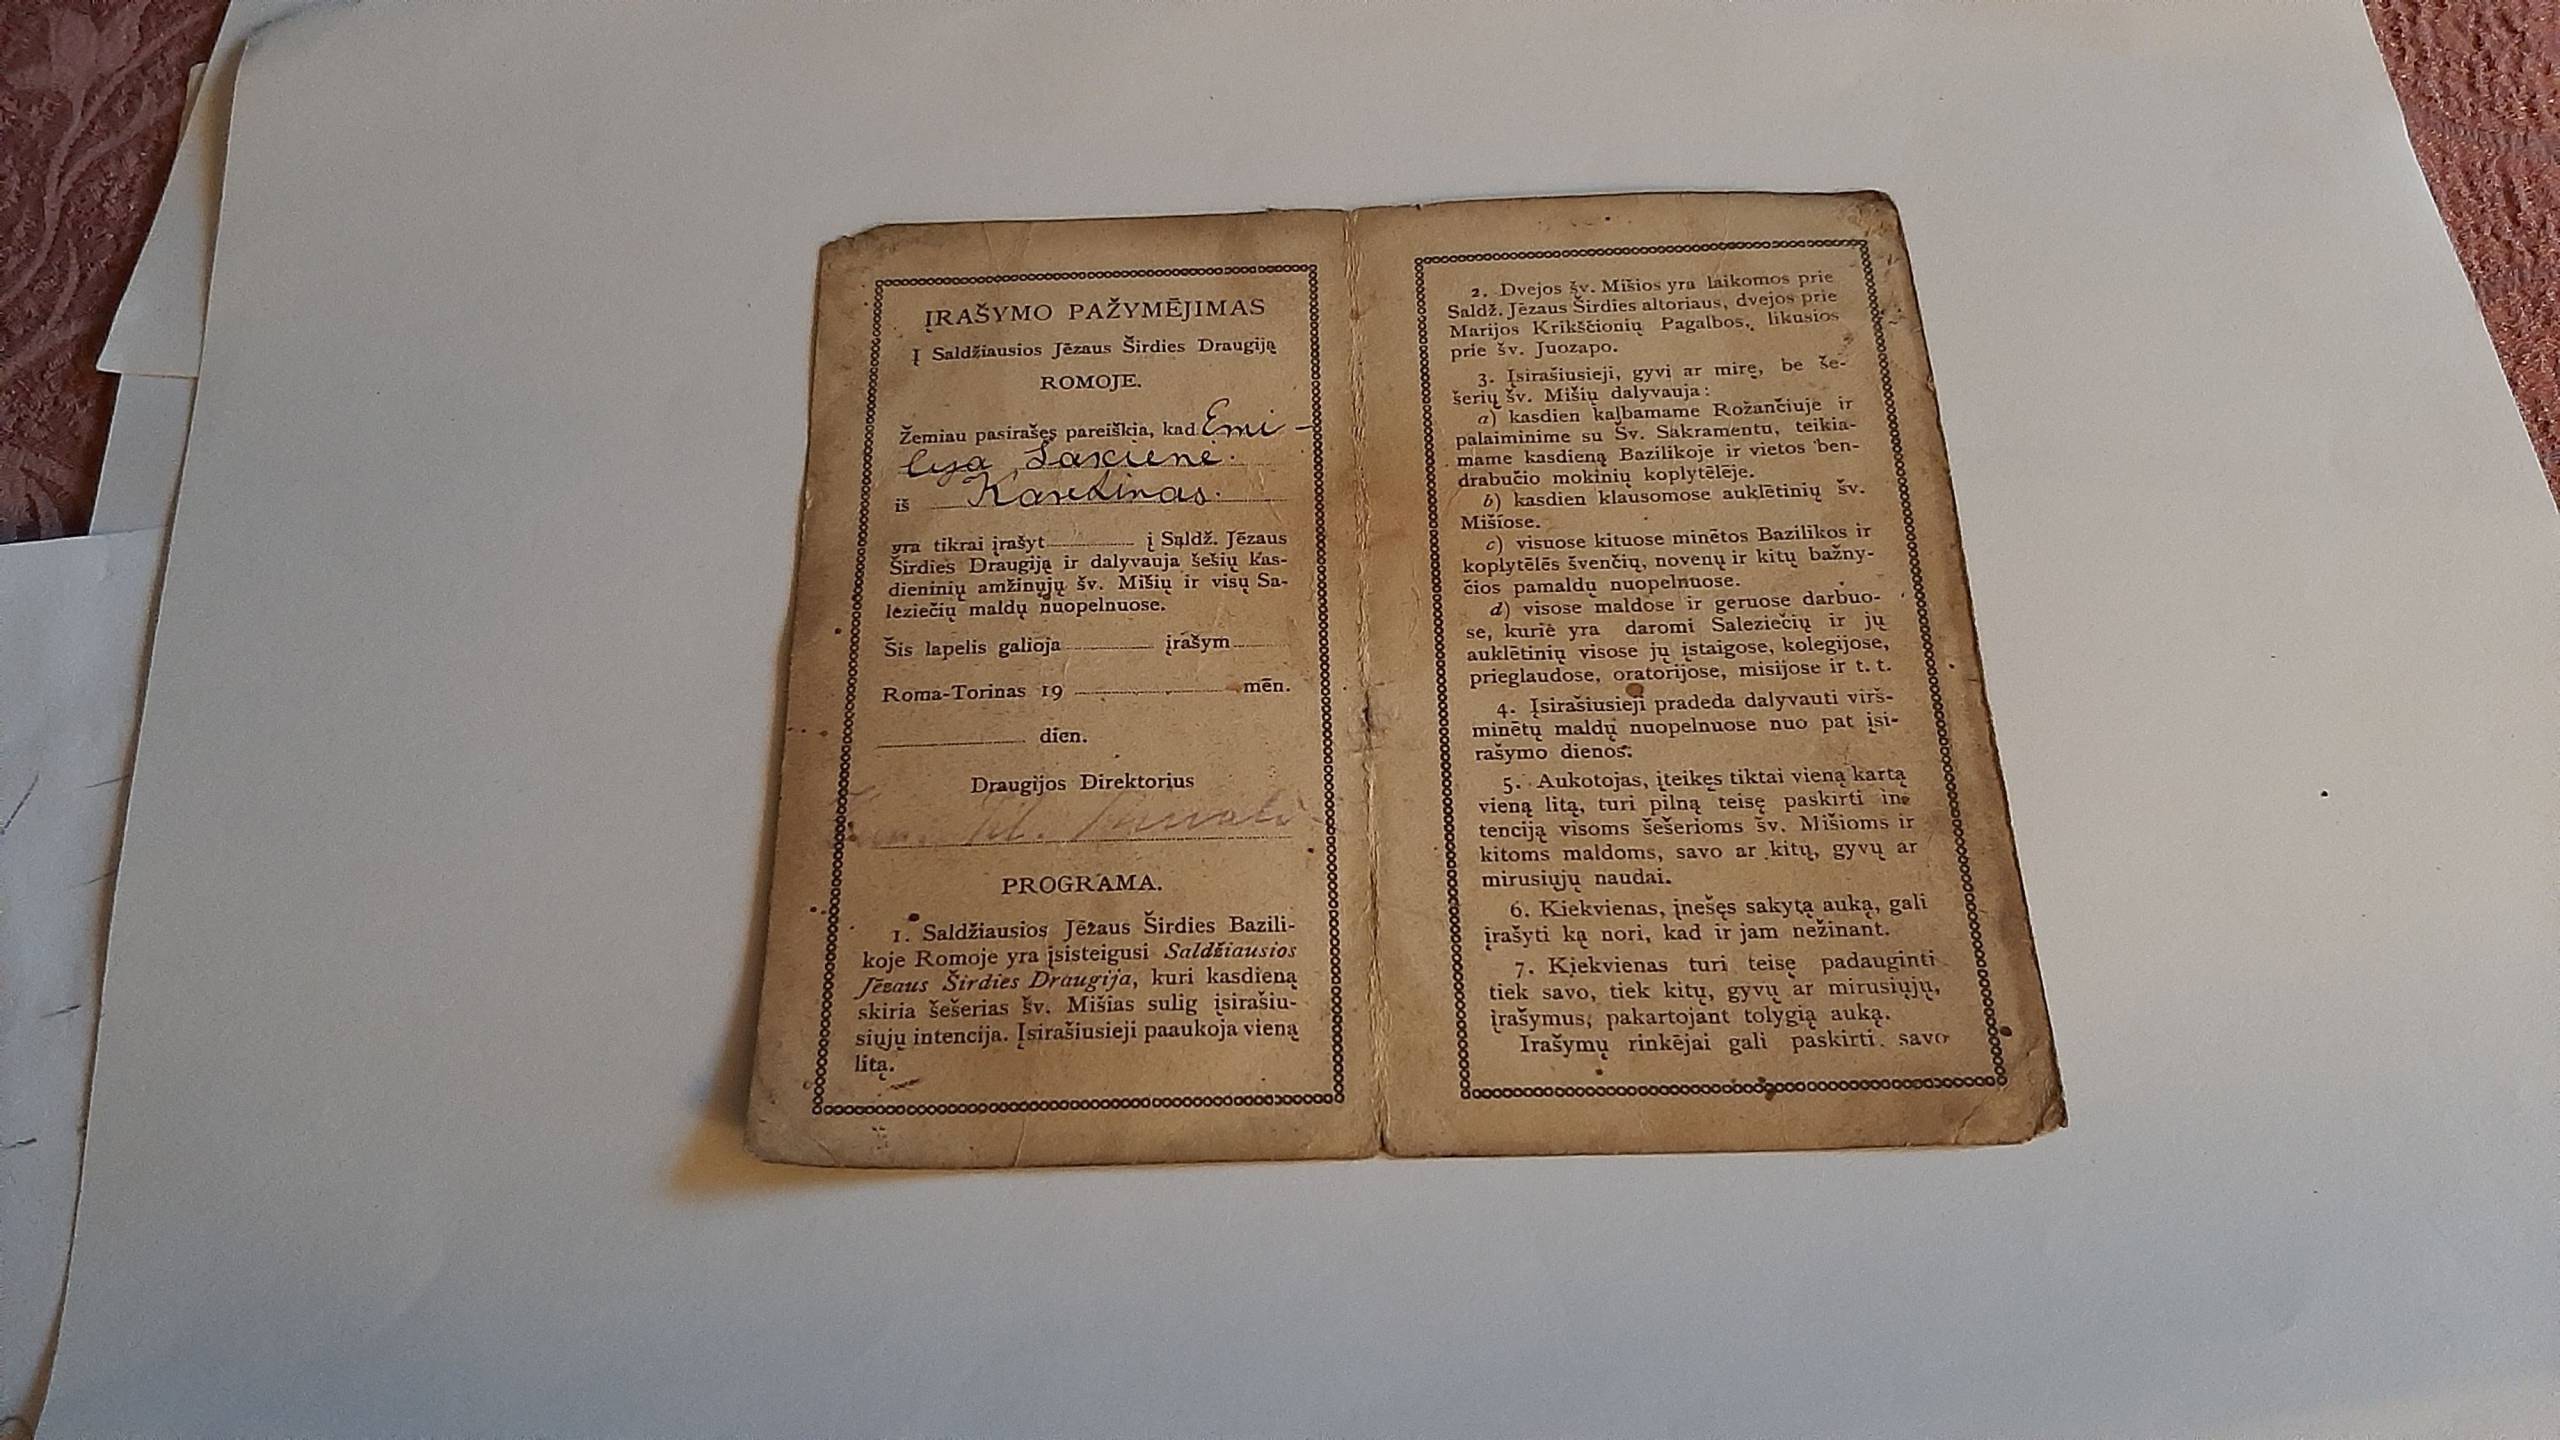 ĮRAŠYMO PAŽYMĖJIMAS
Į Saldžiausios Jėzaus Širdies Draugiją
ROMOJE.
Žemiau pasirašęs pareiškia, kad Emi-
lija
iš
yra tikrai įrašyt į Saldž. Jėzaus
Širdies Draugiją ir dalyvauja šešių kas-
dieninių amžinųjų šv. Mišių ir visų Sa-
leziečių maldų nuopelnuose.
Šis lapelis galioja įrašym
Roma-Torinas 19 mėn.
dien.
Draugijos Direktorius
PROGRAMA.
1. Saldžiausios Jėzaus Širdies Bazili-
koje Romoje yra įsisteigusi Saldžiausios
Jėzaus Širdies Draugija, kuri kasdieną
skiria šešerias šv. Mišias sulig įsirašiu-
siųjų intencija. Įsirašiusieji paaukoja vieną
litą.
2. Dvejos šv. Mišios yra laikomos prie
Saldž. Jėzaus Širdies altoriaus, dvejos prie
Marijos Krikščionių Pagalbos, likusios
prie šv. Juozapo.
3. Įsirašiusieji, gyvi ar mirę, be še-
šerių šv. Mišių dalyvauja:
a) kasdien kalbamame Rožančiuje ir
palaiminime su Šv. Sakramentu, teikia-
mame kasdieną Bazilikoje ir vietos ben-
drabučio mokinių koplytėlėje.
b) kasdien klausomose auklėtinių šv.
Mišiose.
c) visuose kituose minėtos Bazilikos ir
koplytėlės švenčių, novenų ir kitų bažny-
čios pamaldų nuopelnuose.
d) visose maldose ir geruose darbuo-
se, kurie yra daromi Saleziečių ir jų
auklėtinių visose jų įstaigose, kolegijose,
prieglaudose, oratorijose, misijose ir t. t.
4. Įsirašiusieji pradeda dalyvauti virš-
minėtų maldų nuopelnuose nuo pat įsi-
rašymo dienos.
5. Aukotojas, įteikęs tiktai vieną kartą
vieną litą, turi pilną teisę paskirti in-
tenciją visoms šešerioms šv. Mišioms ir
kitoms maldoms, savo ar kitų, gyvų ar
mirusiųjų naudai.
6. Kiekvienas, įnešęs sakytą auką, gali
įrašyti ką nori, kad ir jam nežinant.
7. Kiekvienas turi teisę padauginti
tiek savo, tiek kitų, gyvų ar mirusiųjų,
įrašymus, pakartojant tolygią auką.
Irašymų rinkėjai gali paskirti savo